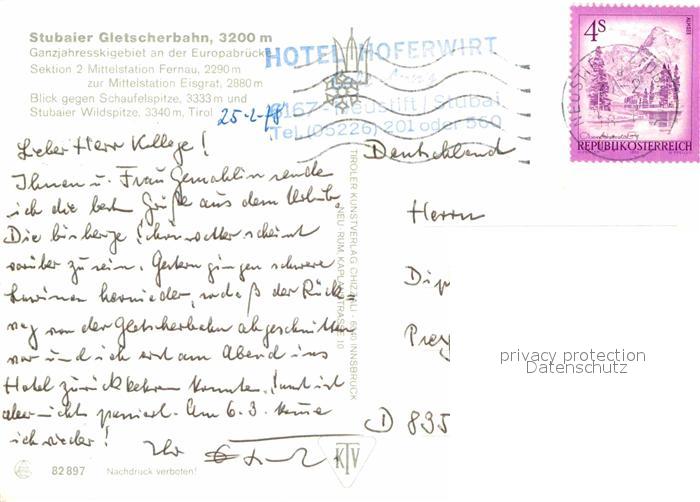 Stubaier Gletscherbahn, 3200 m
Ganzjahresskigebiet an der Europabrücke
Sektion 2 Mittelstation Fernau, 2290 m
zur Mittelstation Eisgrat, 2880 m
Blick gegen Schaufelspitze, 3333 m und
Stubaier Wildspitze, 3340 m, Tirol
25-2-78
HOTEL HOFERWIRT
6167 - Neustift / Stubai
Tel. (05226) 201 oder 560
4 S
ALMSEE
REPUBLIK ÖSTERREICH
Lieber Herr Kollege!
Ihnen u. Frau Gemahlin sende
ich die besten Grüße aus dem Urlaub.
Die bisherige Schönwetter scheint
vorüber zu sein. Gestern gingen schwere
Lawinen hernieder, sodaß der Rück-
weg von der Gletscherbahn abgeschnitten
war und ich erst am Abend ins
Hotel zurückkehren konnte. Sonst ist
aber nichts passiert. Am 6.3. komme
ich wieder!
Ihr
Deutschland
Herrn
Dip
Prey
D 835
privacy protection
Datenschutz
TIROLER KUNSTVERLAG CHIZZALI - 6040 INNSBRUCK
NEU-RUM, KAPLANSTRASSE 10
KTV
82 897
Nachdruck verboten!